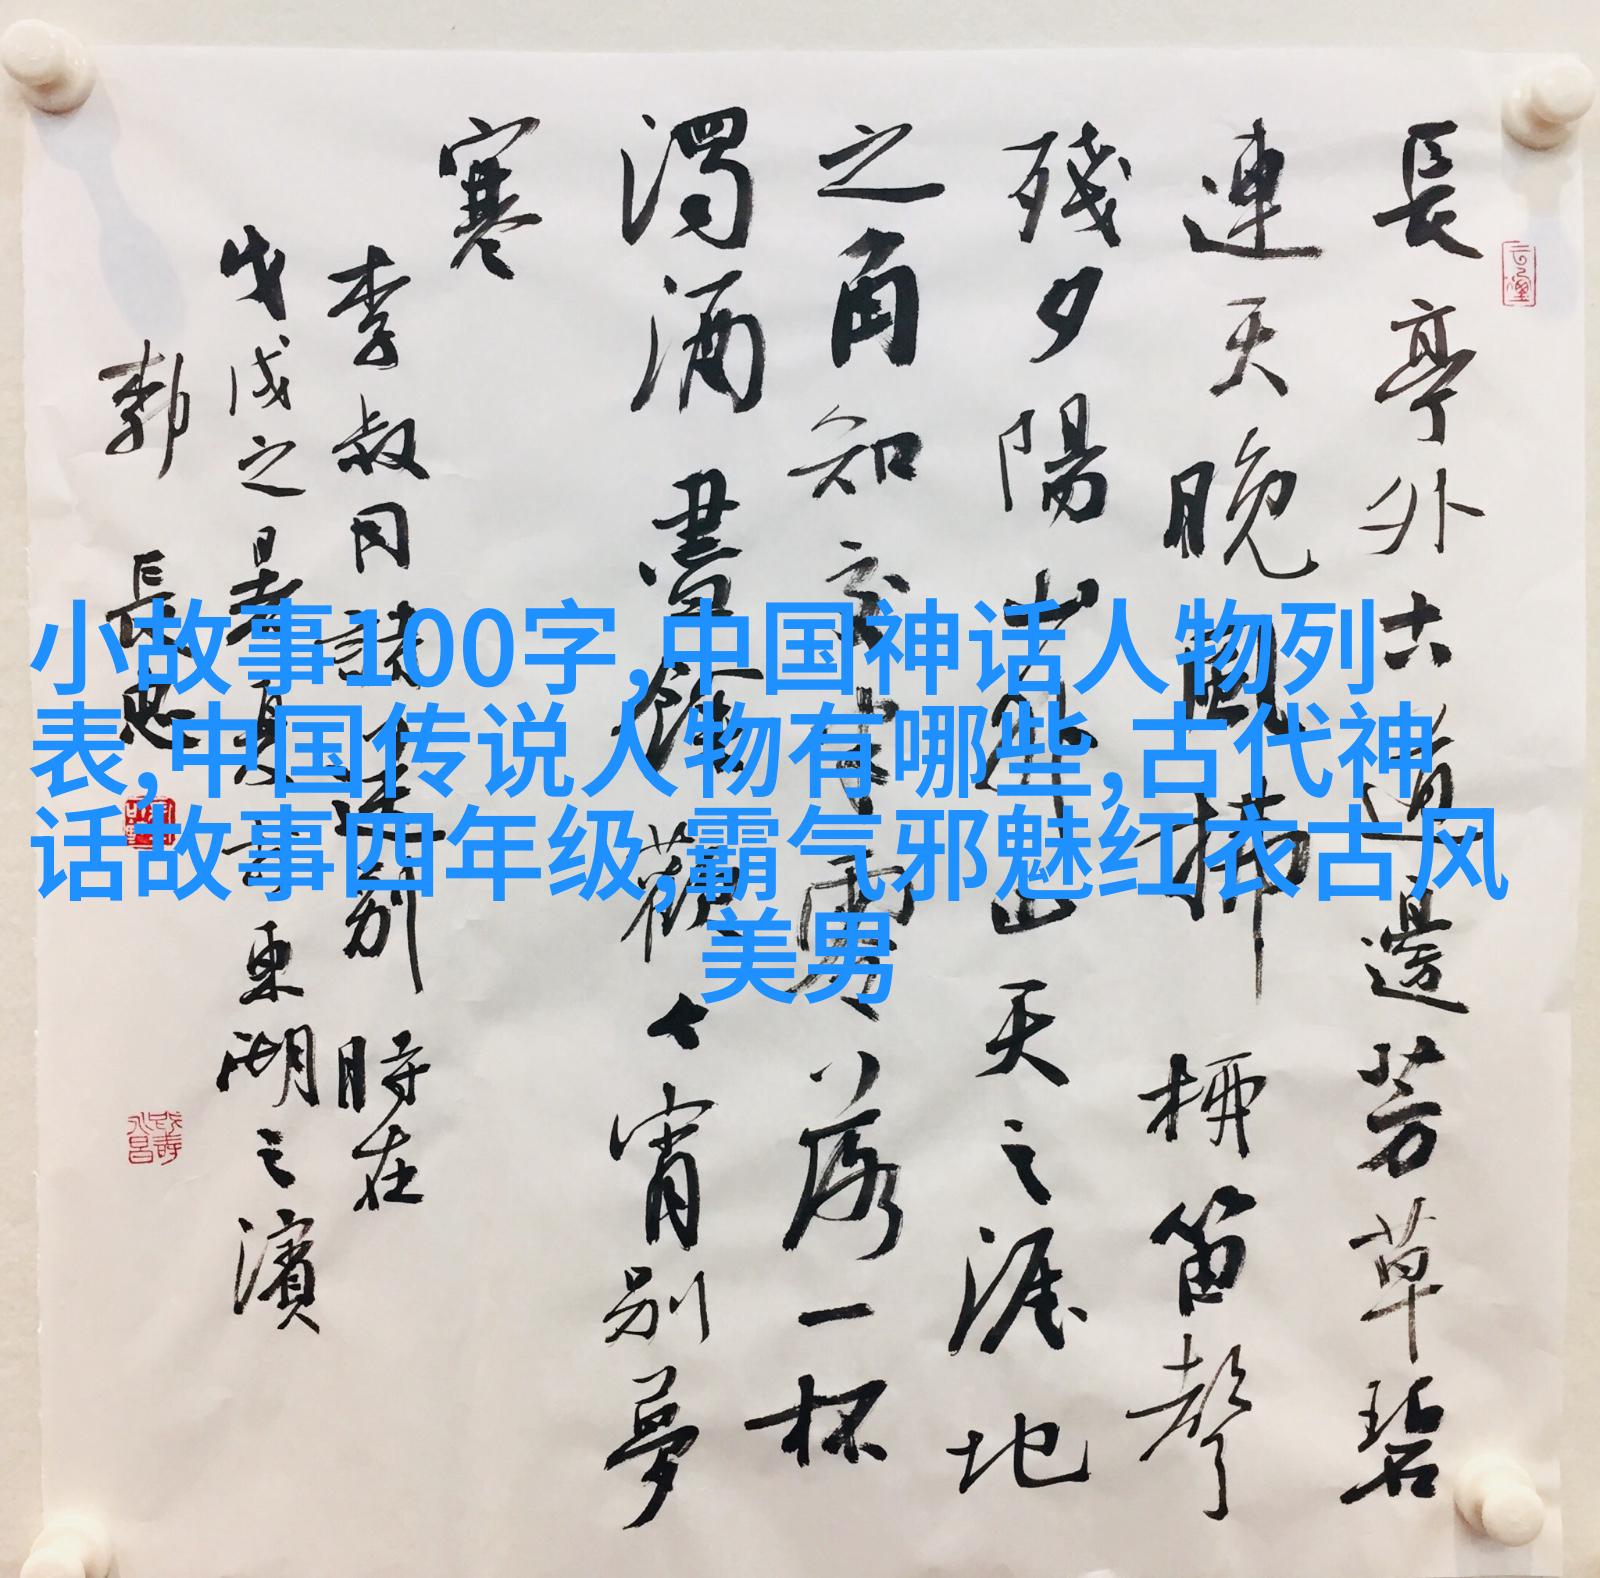 長亭外古道邊芳草碧
連天晚風拂柳笛聲
殘夕陽山外山天之涯地
之角知交半零落一杯
濁酒盡餘歡今宵別夢
寒
李叔同詩送别時在
戊戌之暑夏東湖之濱
長
小故事100字,中国神话人物列
表,中国传说人物有哪些,古代神
话故事四年级,霸气邪魅红衣古风
美男